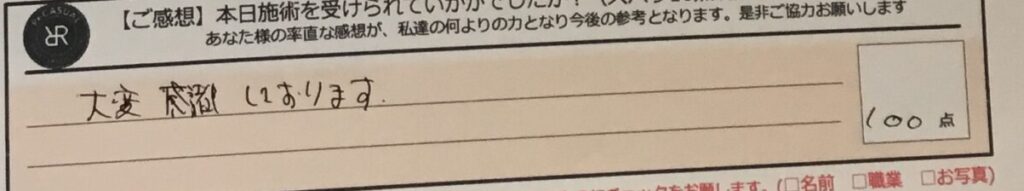 【ご感想】本日施術を受けられていかがでしたか?
あなた様の率直な感想が、私達の何よりの力となり今後の参考となります。是非ご協力お願いします
大変 感謝しております.
100 点
お願いします。(□名前 □職業 □お写真)